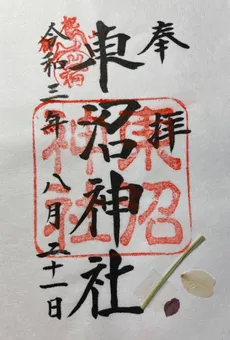 奉拝
東沼神社
令和三年八月二十一日
東沼
神社